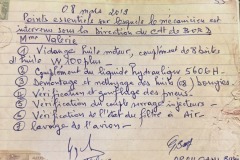 08 mars 2018
Points essentiels sur lesquels le mécanicien est
intervenu sous la Direction du CAt de BORD
Mme Valérie
1 Vidange huile moteur, complément de 8 boites
d'huile W 100 plus
2 Complément du liquide hydraulique 560GH
3 Démontage et nettoyage des huits (8) bougies
4 Vérification et gonflage des pneus
5 Vérification du couple serrage injecteurs
6 Vérification de l'état du filtre à Air
7 Lavage de l'avion